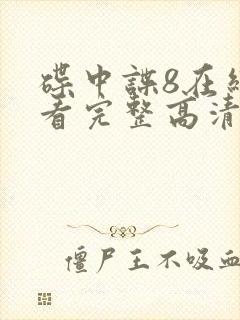 碟中諜8在
看完整高清
僵尸王不吸血